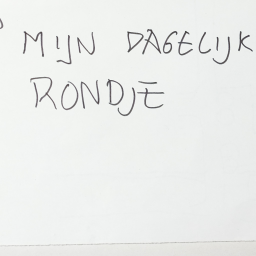 MIJN DAGELIJK
RONDJE